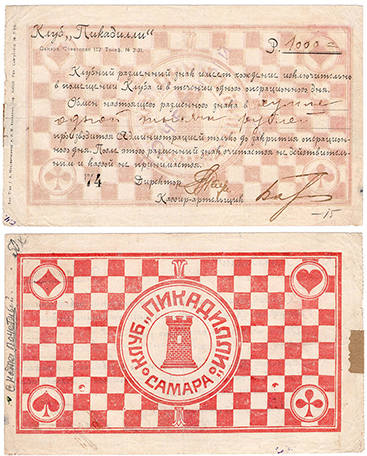 Клуб „Пикадилли"
Самара, Советская 112 Телеф. № 2-31.
Р. 1000 =
Клубный разменный знак имеет хождение исключительно
в помещении Клуба и в течении одного операционного дня.
Обмен настоящего разменного знака в сумме
одной тысячи рублей
производится Администрацией только до закрытия операцион-
ного дня. После этого разменный знак считается не действитель-
ным и кассой не принимается.
74
Директор
Кассир-артельщик
-15
КЛУБ „ПИКАДИЛЛИ"
САМАРА